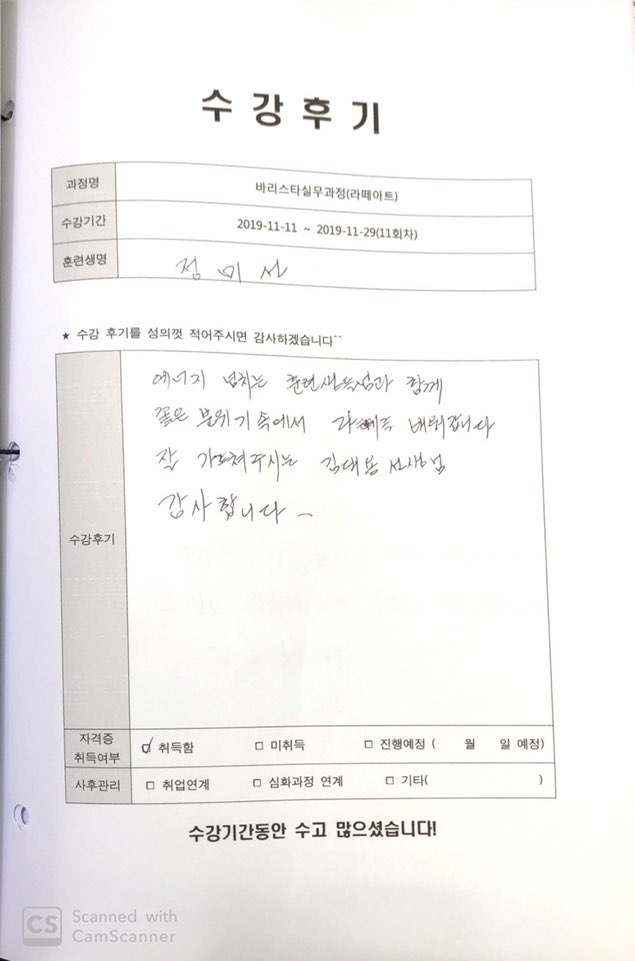 수강후기
과정명 바리스타실무과정(라떼아트)
수강기간 2019-11-11 ~ 2019-11-29(11회차)
훈련생명 정미선
★ 수강 후기를 성의껏 적어주시면 감사하겠습니다^^
에너지 넘치는 훈련생들과 함께
좋은 분위기 속에서 배워갑니다
잘 가르쳐주시는 김대용 선생님
감사합니다~
수강후기
자격증 취득여부 ☑ 취득함 □ 미취득 □ 진행예정 ( 월 일 예정)
사후관리 □ 취업연계 □ 심화과정 연계 □ 기타( )
수강기간동안 수고 많으셨습니다!
CS Scanned with
CamScanner